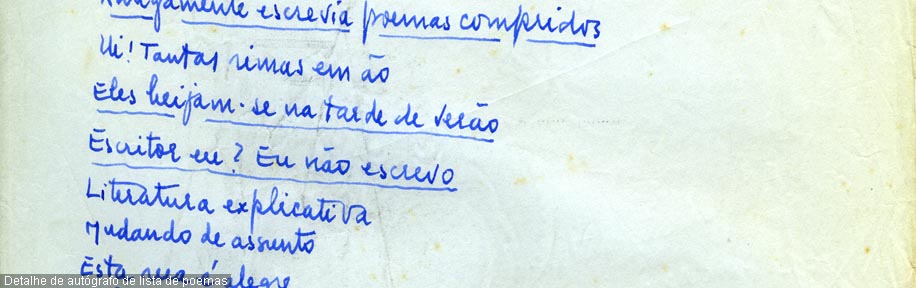 Antigamente escrevia poemas compridos
Ui! Tantas rimas em ão
Eles beijam-se na tarde de verão
Escritor eu? Eu não escrevo
Literatura explicativa
Mudando de assunto
Esta rua é alegre
Detalhe de autógrafo de lista de poemas